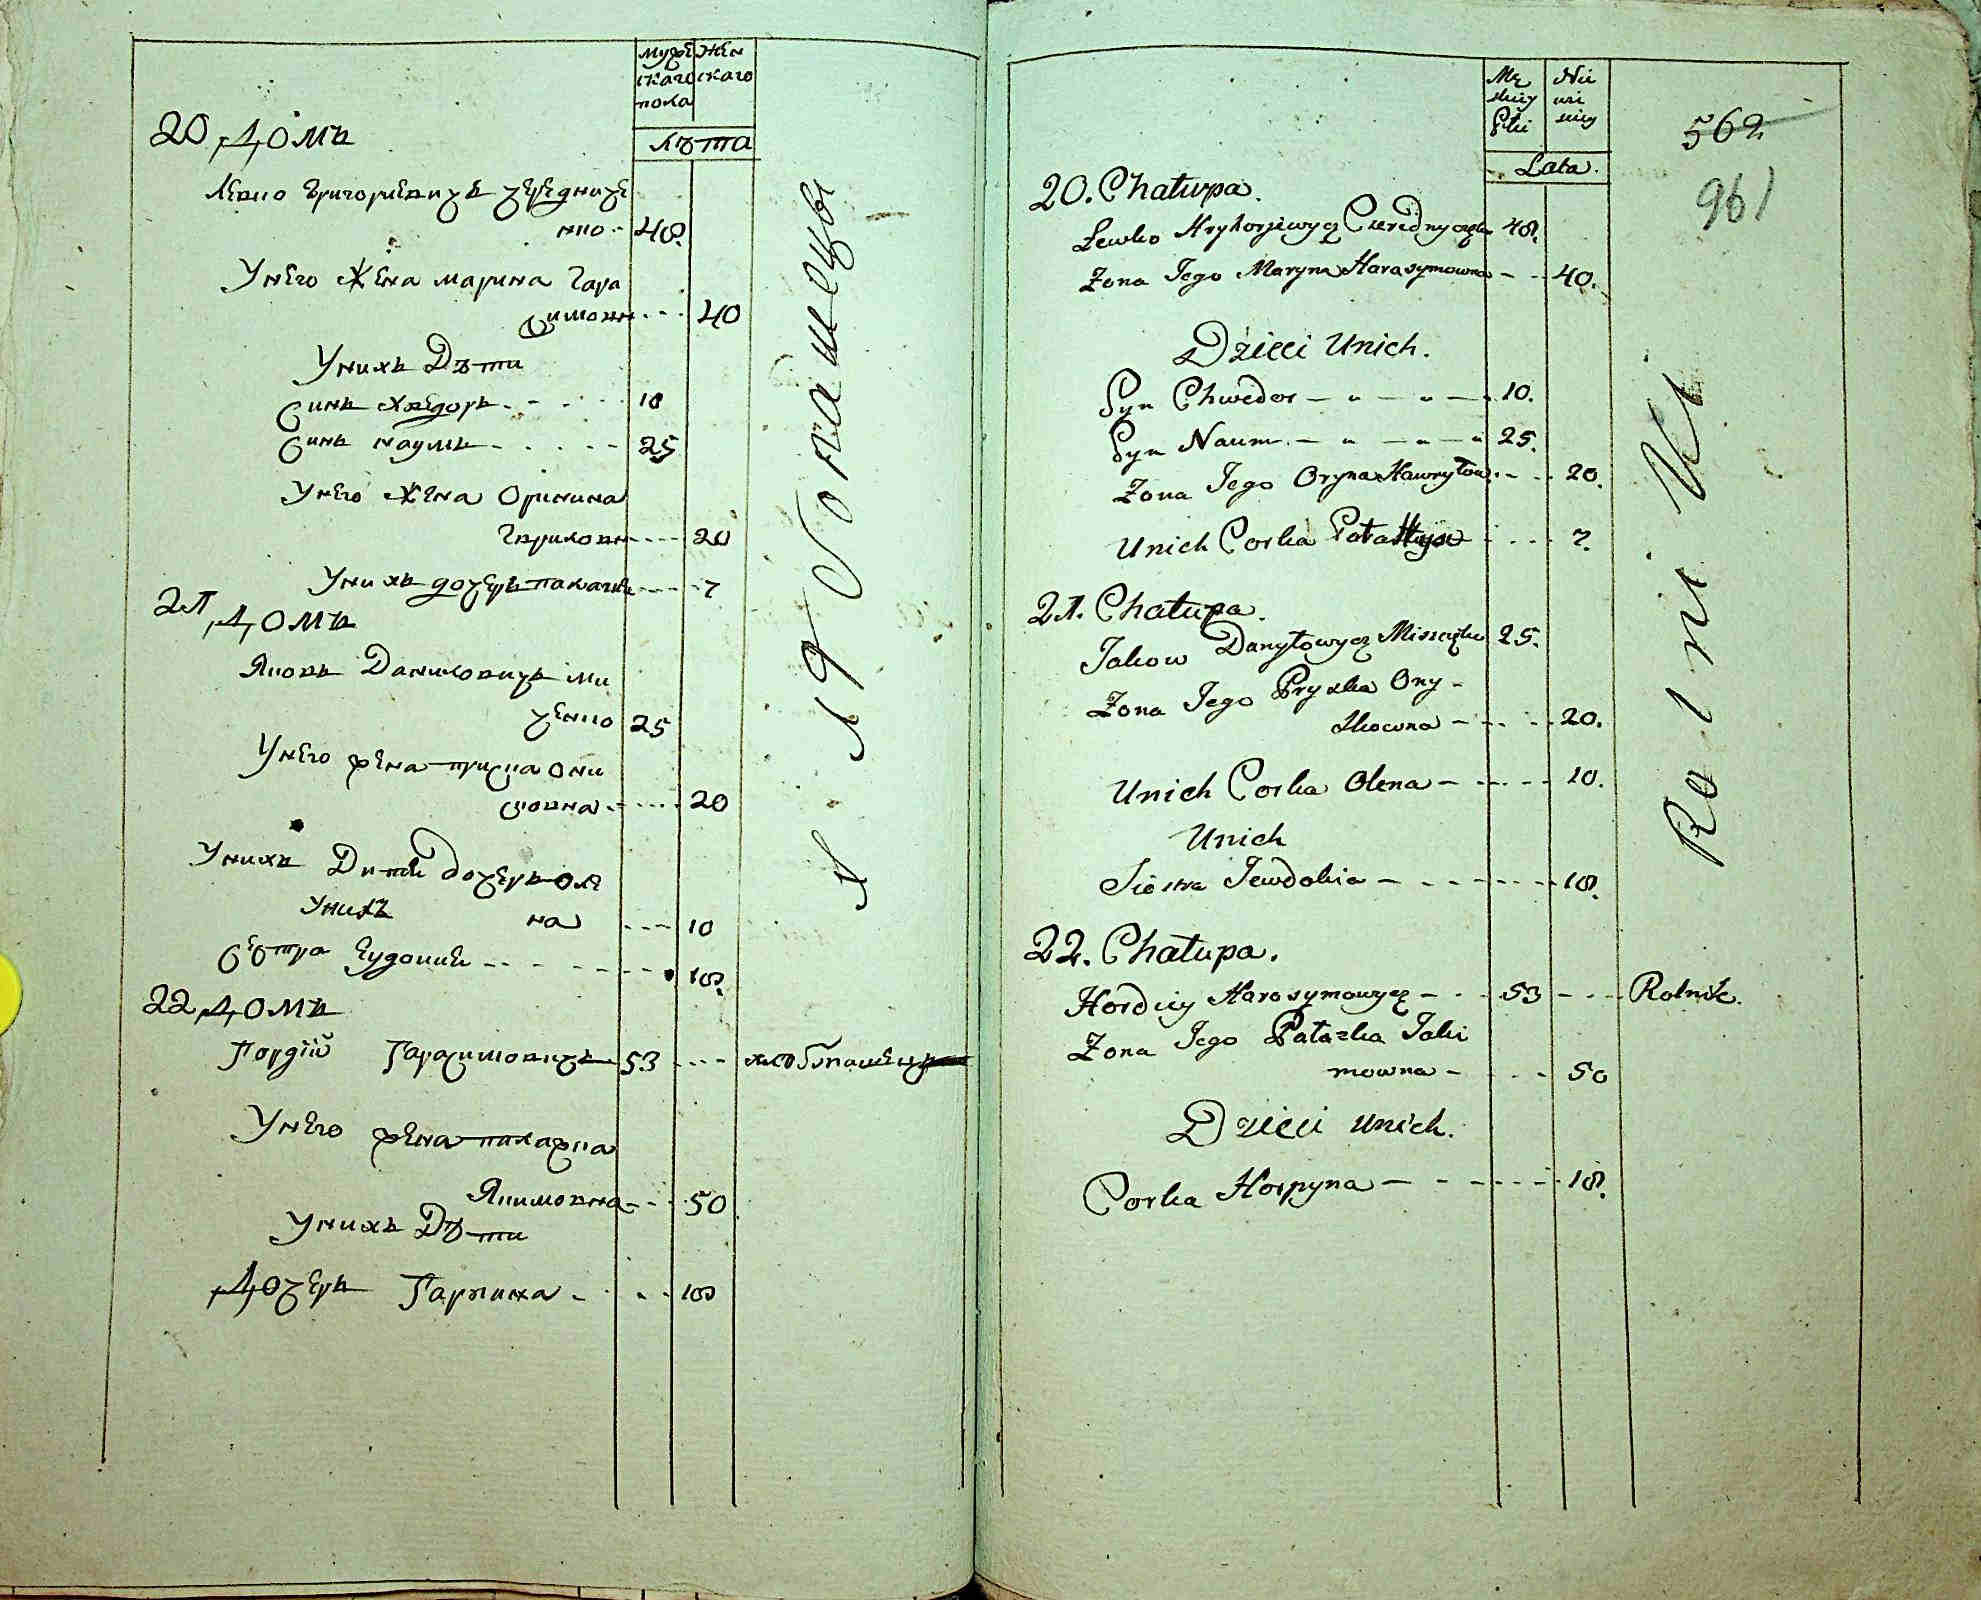 Муже
скаго
пола
Жен
скаго
лѣта
20 Домъ
Левко Григориевичъ Чередниче
нко - 48.
Унего Жена марина Гара
симовн - - - 40
Унихъ Дѣти
Синъ Хведоръ - - - - 10
Синъ Наумъ - - - - - 25
Унего Жена Оринина
Гаврилови - - - - 20
Унихъ дочерь палагиѣ - - - - 7
21 Домъ
Яковъ Даниловичъ ми
ченко 25
Унего жена приска они
сковна - - - - 20
Унихъ Дитѣ дочерь оле
на - - - 10
Унихъ
Сестра Еудокиѣ - - - - - 18.
22 Домъ
Гордій Гарасимовичъ - 53 - - - хлѣбопашецъ
Унего жена палажка
Якимовна - - - 50
Унихъ Дѣти
Дочерь Гарпина - - - 18
хлѣбопашецы
Mę
skiey
Płci
Nie
wie
skiey
Lata.
562
961
20. Chałupa.
Lewko Hryhorjewycz Czerednyczęko 48.
Zona Jego Maryna Harasymowna - - - 40.
Dzieci Unich.
Syn Chwedor - - - - 10.
Syn Naum. - - - - 25.
Zona Jego Oryna Hawryłow. - - - 20.
Unich Corka Pałahyja - - - - 7.
21. Chałupa.
Jakow Danyłowycz Miszczęko 25.
Zona Jego Pryska Ony -
skowna - - - - 20.
Unich Corka Olena - - - - - 10.
Unich
Siostra Jewdokia - - - - - - 18.
22. Chałupa.
Hordiey Harasymowycz - - - 53 - - - Rolnik.
Zona Jego Pałaszka Jaki
mowna - - - - 50
Dzieci unich.
Corka Horpyna - - - - - - 18.
Rolniki